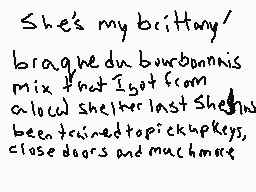 She's my brittany/
braque du bourbonnais
mix that I got from
a local shelter last She has
been trained to pick up keys,
close doors and much more